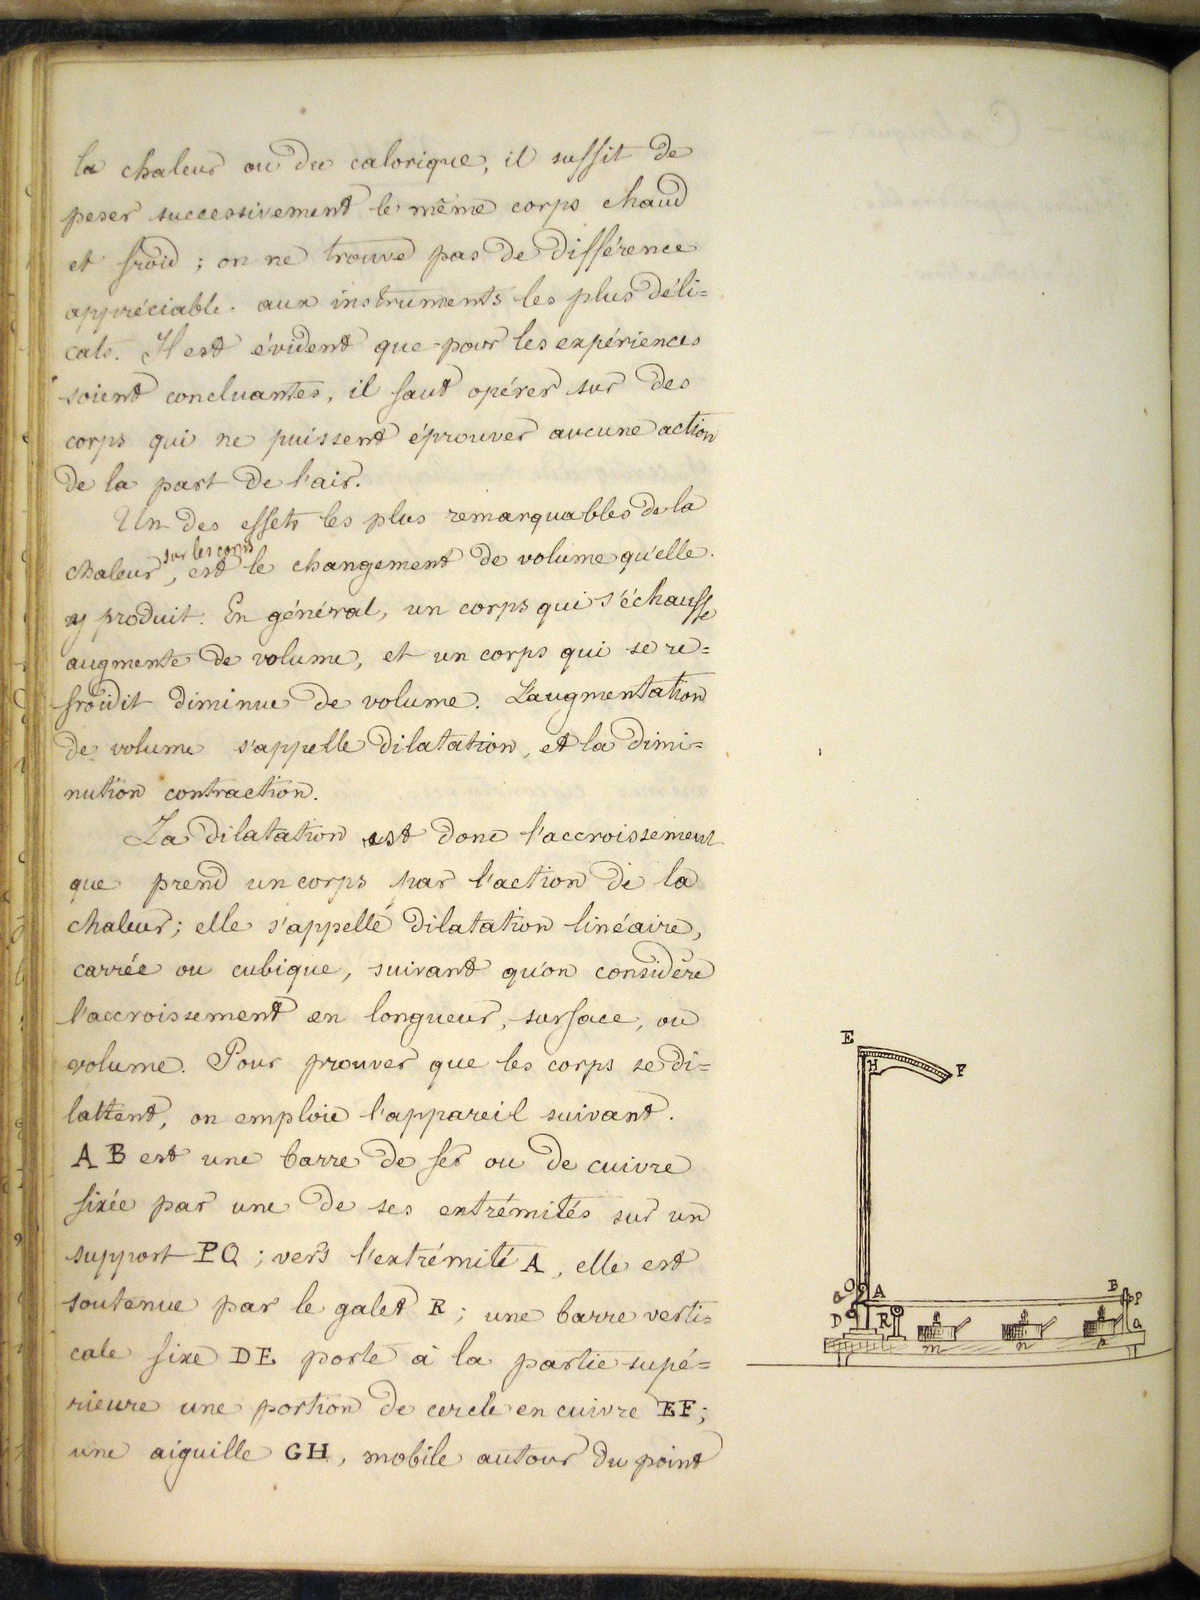 la chaleur ou du calorique, il suffit de
peser successivement le même corps chaud
et froid ; on ne trouve pas de différence
appréciable. aux instruments les plus déli=
cats. Il est évident que pour les expériences
soient concluantes, il faut opérer sur des
corps qui ne puissent éprouver aucune action
de la part de l'air.
Un des effets les plus remarquables de la
sur les corps
chaleur, est le changement de volume qu'elle
y produit. En général, un corps qui s'échauffe
augmente de volume, et un corps qui se re=
froidit diminue de volume. L'augmentation
de volume s'appelle dilatation, et la dimi=
nution contraction.
La dilatation est donc l'accroissement
que prend un corps par l'action de la
chaleur; elle s'appelle dilatation linéaire,
carrée ou cubique, suivant qu'on considère
l'accroissement en longueur, surface, ou
volume. Pour prouver que les corps se di=
lattent, on emploie l'appareil suivant.
AB est une barre de fer ou de cuivre
fixée par une de ses extrémités sur un
support PQ ; vers l'extrémité A, elle est
soutenue par le galet R ; une barre verti=
cale fixe DE porte à la partie supé=
rieure une portion de cercle en cuivre EF;
une aiguille GH, mobile autour du point
E
H
F
A
B
P
D
R
Q
m
n